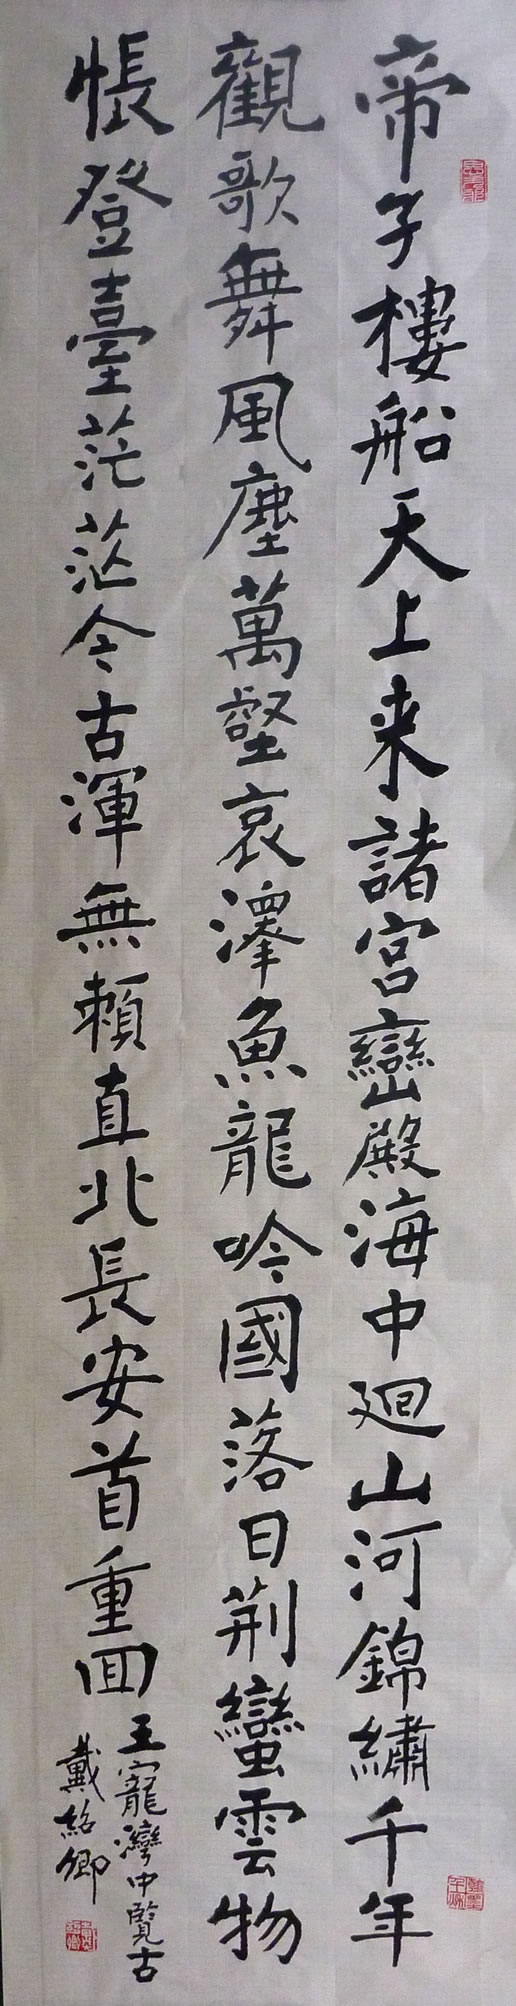 帝子樓船天上来諸宮巒殿海中廻山河錦繡千年
觀歌舞風塵萬壑哀澤魚龍吟國落日荆蠻雲物
悵登臺茫茫今古渾無賴直北長安首重回
王寵灣中覽古
戴紹卿